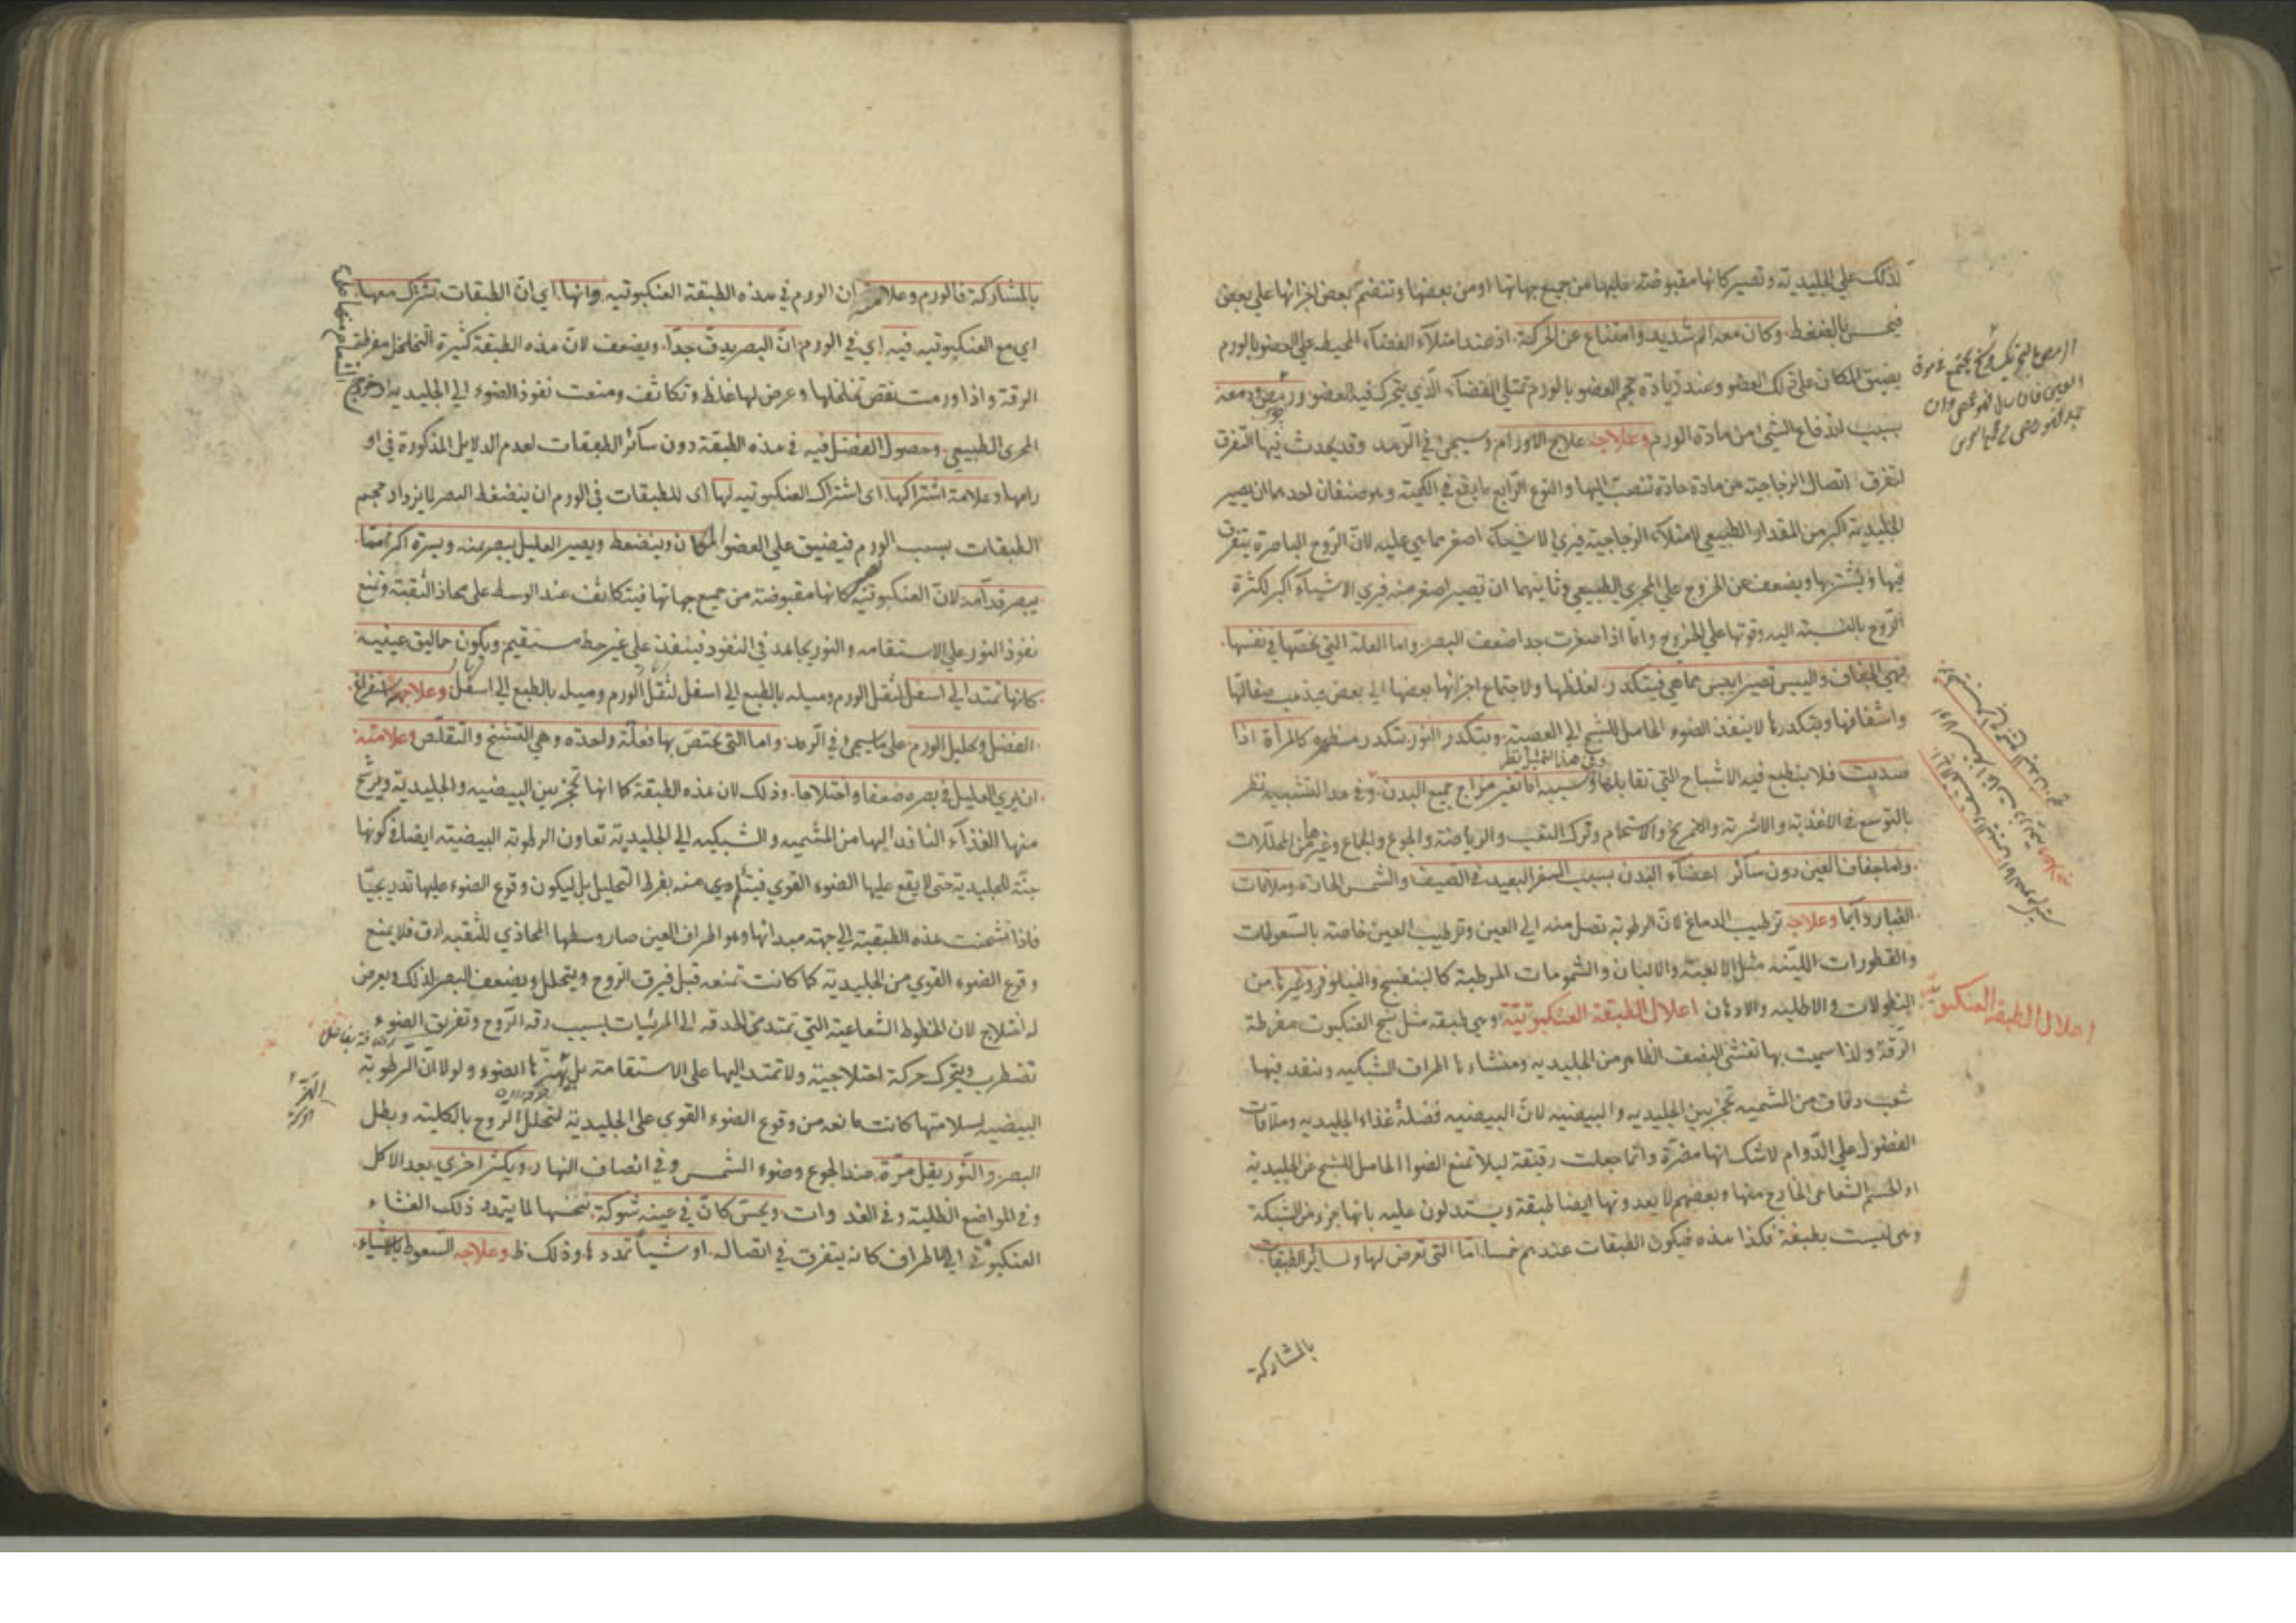 لذلك علي الجليدية وتصير كانها مقبوضة عليها من جميع جهاتها او من بعضها وتنضم بعض اجزائها علي بعض
فيحس بالضغط وكان معه الم شديد وامتناع عن الحركة اذ عند امتلاء الفضاء المحيط علي العضو بالورم
يضيق المكان علي ذلك العضو وعند زيادة حجم العضو بالورم تمتلي الفضاء الذي يتحرك فيه العضو ورمص دمعة
بسبب اندفاع الشي من مادة الورم وعلاجه علاج الاورام وسيجئ في الرمد وقد يحدث فيها التفرق
لتفرق اتصال الزجاجية من مادة حادة تنصب اليها والنوع الرابع ما يقع في الكمية وهو صنفان احدهما ان يصير
الجليدية اكبر من المقدار الطبيعي لامتلاء الزجاجية فيري الاشياء اصغر مما هي عليه لان الروح الباصرة يتفرق
فيها وينتشر بها ويضعف عن الخروج علي المجري الطبيعي وثانيهما ان تصير اصغر منه فيري الاشياء اكبر لكثرة
الروح بالنسبة اليه وقوتها علي الخروج واما اذا صغرت جدا ضعف البصر واما العلة التي تخصها في نفسها
فهي الجفاف واليبس تصير ايبس مما هي فيتكدر لغلظها ولاجتماع اجزائها بعضها الي بعض فيذهب صقالتها
واشفافها وبتكدرها لا ينفذ الضوء الحامل للشبح الي العصبة ويتكدر النور بتكدر مسطحه كالمرأة اذا
وفي هذا التمثيل نظر
صديت فلا ينطبع فيه الاشباح التي تقابلها وسببه اما تغير مزاج جميع البدن وفي هذا التشبيه نظر
بالتوسع في الاغذية والاشربة والتمريخ والاستحمام وترك التعب والرياضة والجوع والجماع وغيرها من المحللات
واما جفاف العين دون سائر اعضاء البدن بسبب السفر البعيد في الصيف والشمس الحارة وملاقات
الغبار دائما وعلاجه ترطيب الدماغ لان الرطوبة تصل منه الي العين وترطيب العين خاصة بالسعوطات
والقطورات اللينة مثل الالعبة والالبان والشمومات المرطبة كالبنفسج والنيلوفر وغيرها من
النطولات والاطلية والادهان اعلال الطبقة العنكبوتية وهي طبقة مثل نسج العنكبوت مفرطة
الرقة ولذا سميت بها تغشي النصف الظاهر من الجليدية ومنشاءها اطراف الشبكية وينفذ فيها
شعب دقاق من المشمية تحجز بين الجليدية والبيضية لان البيضية فضلة غذاء الجليدية وملاقات
الفضول علي الدوام لا شك انها مضرة وانما جعلت رقيقة ليلا تمنع الضوء الحامل للشبح عن الجليدية
او الجسم الشعاعي الخارج منها وبعضهم لا يعدونها ايضا طبقة ويستدلون عليه بانها جزء من الشبكة
وهي ليست بطبقة فكذا هذه فيكون الطبقات عندهم خمسا اما التي تعرض لها ولسائر الطبقات
بالمشاركة
اعلال الطبقة العنكبوتية
بالمشاركة فالورم وعلامته ان الورم في هذه الطبقة العنكبوتية وانها اي ان الطبقات تشترك معها
اي مع العنكبوتيه فيه اي في الورم ان البصر يدق جدا ويضعف لان هذه الطبقة كثيرة التخلخل مفرطة
الرقة واذا ورمت نقص تخلخلها وعرض لها غلظ وتكاثف ومنعت نفوذ الضوء الي الجليدية
المجري الطبيعي وحصول الفضل فيه في هذه الطبقة دون سائر الطبقات لعدم الدلايل المذكورة في او
رامها وعلامة اشتراكها اي اشتراك العنكبوتيه لها اي للطبقات في الورم ان ينضغط البصر لازدواد حجم
الطبقات بسبب الورم فيضيق علي العضو المكان وينضغط ويصير العليل يبصر يمنه ويسرة اكثر مما
يبصر قدامه لان العنكبوتية كانها مقبوضة من جميع جهاتها فيتكاثف عند الوسط علي محاذ الثقبة وتمنع
نفوذ النور علي الاستقامه والنور يجاهد في النفوذ فينفذ علي غير خط مستقيم ويكون حماليق عينيه
كانها تمتد الي اسفل لثقل الورم وميله بالطبع الي اسفل لثقل الورم وميله بالطبع الي اسفل وعلاجه استفراغ
الفضل وتحليل الورم علي ما سيجئ في الرمد واما التي تختص بها فعلة واحدة وهي التشنج والتقلص وعلامته
ان يري العليل في بصره ضعفا واختلاجا وذلك لان هذه الطبقة كما انها تحجز بين البيضيه والجليدية ويرشح
منها الغذاء النافذ اليها من المشميه والشبكيه الي الجليدية تعاون الرطوبة البيضية ايضا في كونها
جنة للجليدية حتي لا يقع عليها الضوء القوي فيتأدي منه بفرط التحليل بل ليكون وقوع الضوء عليها تدريجيا
فاذا تشنجت هذه الطبقة الي جهة مبدائها وهو اطراف العين صار وسطها المحاذي للثقبه ارق فلا يمنع
وقوع الضوء القوي من الجليدية كما كانت تمنعه قبل فيرق الروح ويتحلل ويضعف البصر لذلك ويعرض
له اختلاج لان الخطوط الشعاعية التي تمتد من الحدقه الي المرئيات بسبب رقة الروح وتفريق الضوء
تضطرب ويتحرك حركة اختلاجية ولا تمتد اليها علي الاستقامة بل الضوء ولولا ان الرطوبة
البيضيه لسلامتها كانت مانعه من وقوع الضوء القوي علي الجليدية لتحلل الروح بالكلية وبطل
البصر والنور يقل مرة عند الجوع وضوء الشمس وفي انصاف النهار ويكثر اخري بعد الاكل
وفي المواضع الظلية وفي الغدوات ويحس كان في عينه شوكة تنخسها لما يتمدد ذلك الغشاء
العنكبوتي الي الاطراف كانه يتفرق في اتصاله او شيأ تمدد ها وذلك ظ وعلاجه السعوط بالاشياء